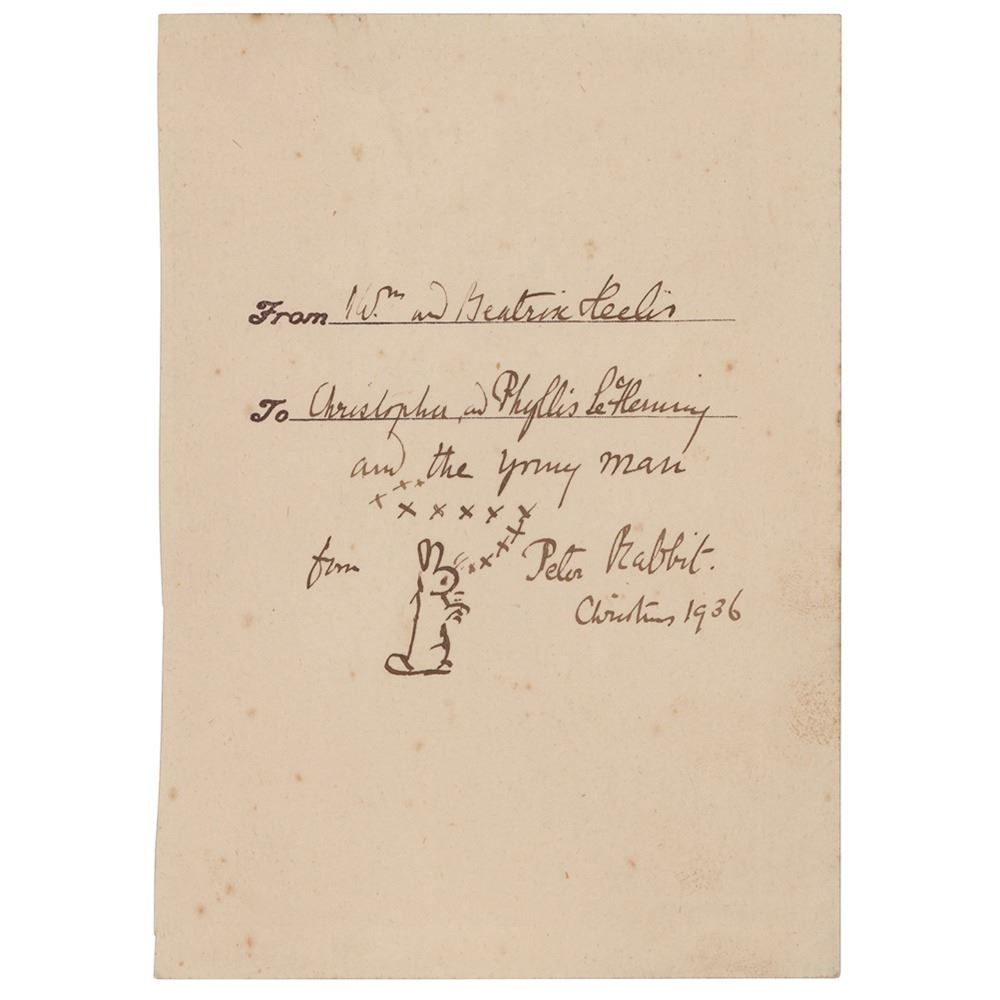 From Wm and Beatrix Heelis
To Christopher and Phyllis Le Fleming
and the young man
x x x
x x x x x
x
x
x
x
from Peter Rabbit.
Christmas 1936